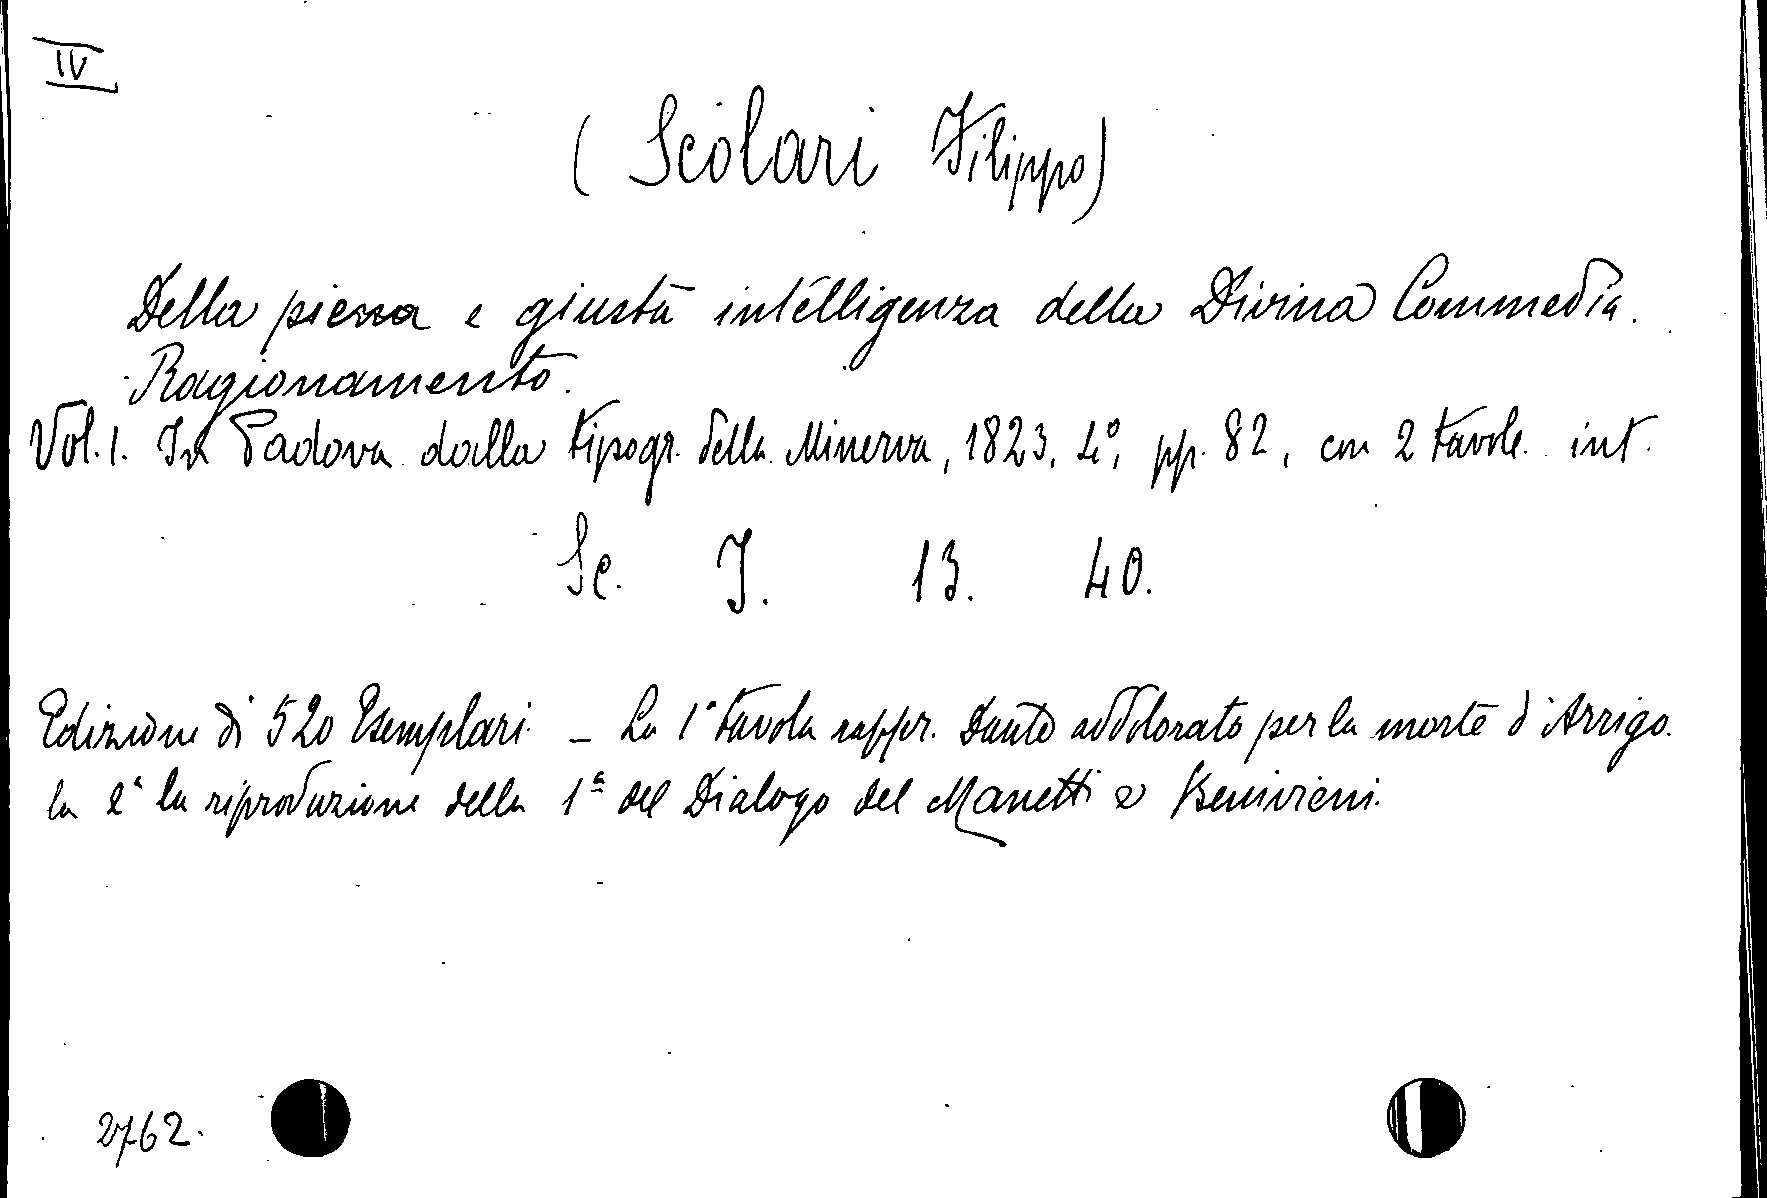 IV
(Scolari Filippo)
Della piena e giusta intelligenza della Divina Commedia.
Ragionamento.
Vol. 1. In Padova dalla tipogr. della Minerva, 1823, 4°, pp. 82, con 2 tavole int.
Sc. I. 13. 40.
Edizione di 520 Esemplari - La 1ª tavola rappr. Dante addolorato per la morte d'Arrigo.
la 2ª la riproduzione della 1ª del Dialogo del Manetti e Benivieni.
2762.